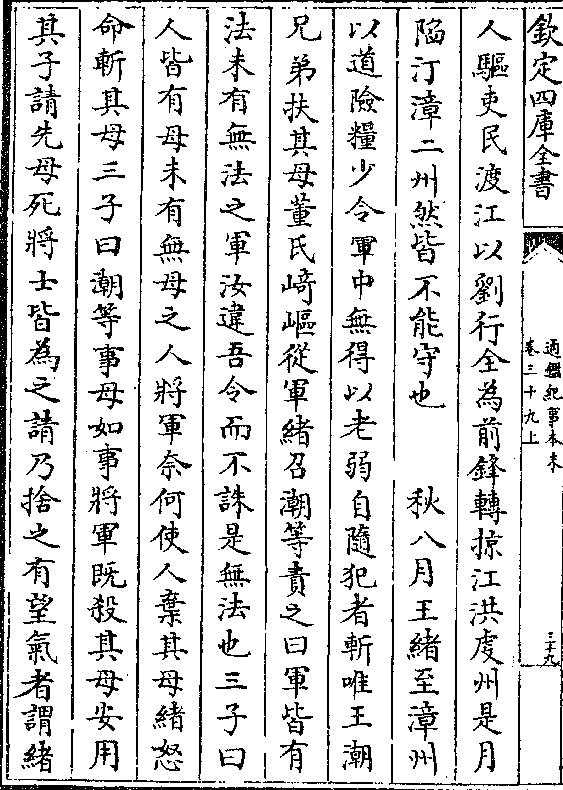 欽定四庫全書
通鑑紀事本末
卷三十九上
三十九
人驅吏民渡江以劉行全為前鋒轉掠江洪虔州是月
陷汀漳二州然皆不能守也　秋八月王緒至漳州
以道險糧少令軍中無得以老弱自隨犯者斬唯王潮
兄弟扶其母董氏崎嶇從軍緒召潮等責之曰軍皆有
法未有無法之軍汝違吾令而不誅是無法也三子曰
人皆有母未有無母之人將軍奈何使人棄其母緒怒
命斬其母三子曰潮等事母如事將軍既殺其母安用
其子請先母死將士皆為之請乃捨之有望氣者謂緒